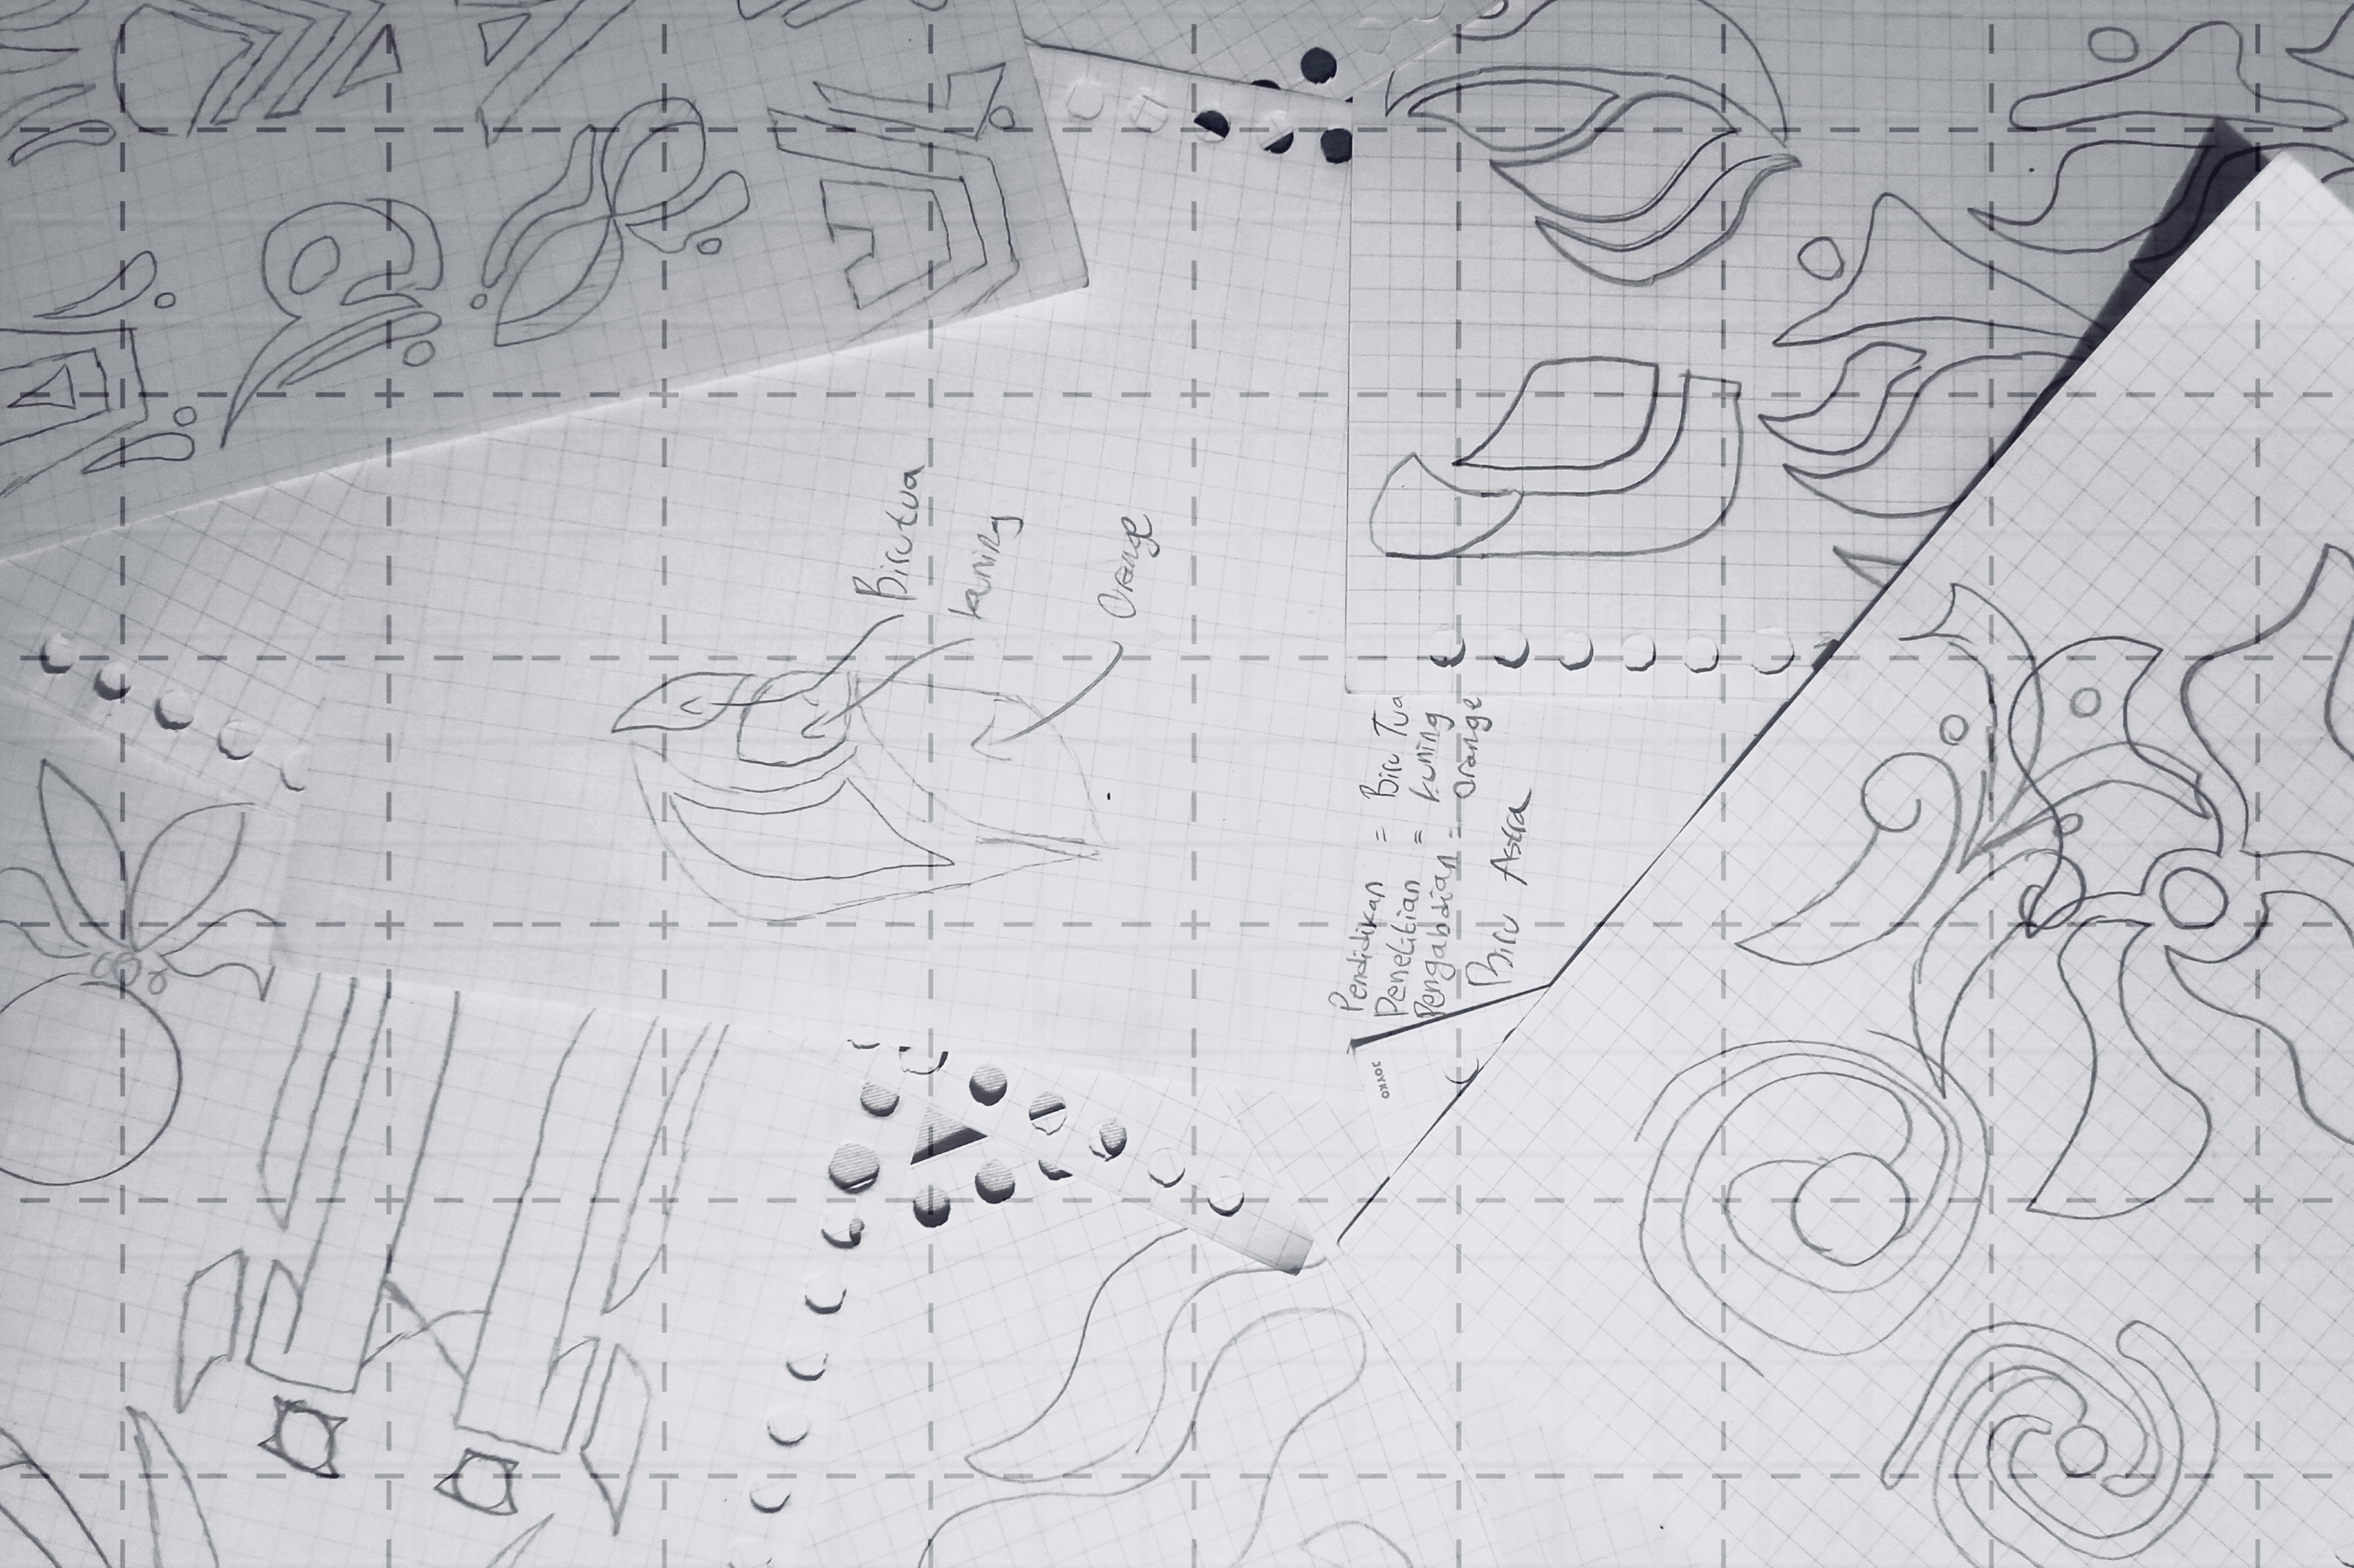 Biru tua
kuning
Orange
Pendidikan = Biru Tua
Penelitian = kuning
Pengabdian = Orange
Biru Astra
JOYKO